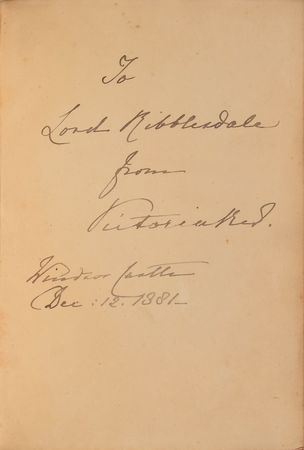 To
Lord Ribblesdale
from
Victoria R&I.
Windsor Castle
Dec: 12. 1881_